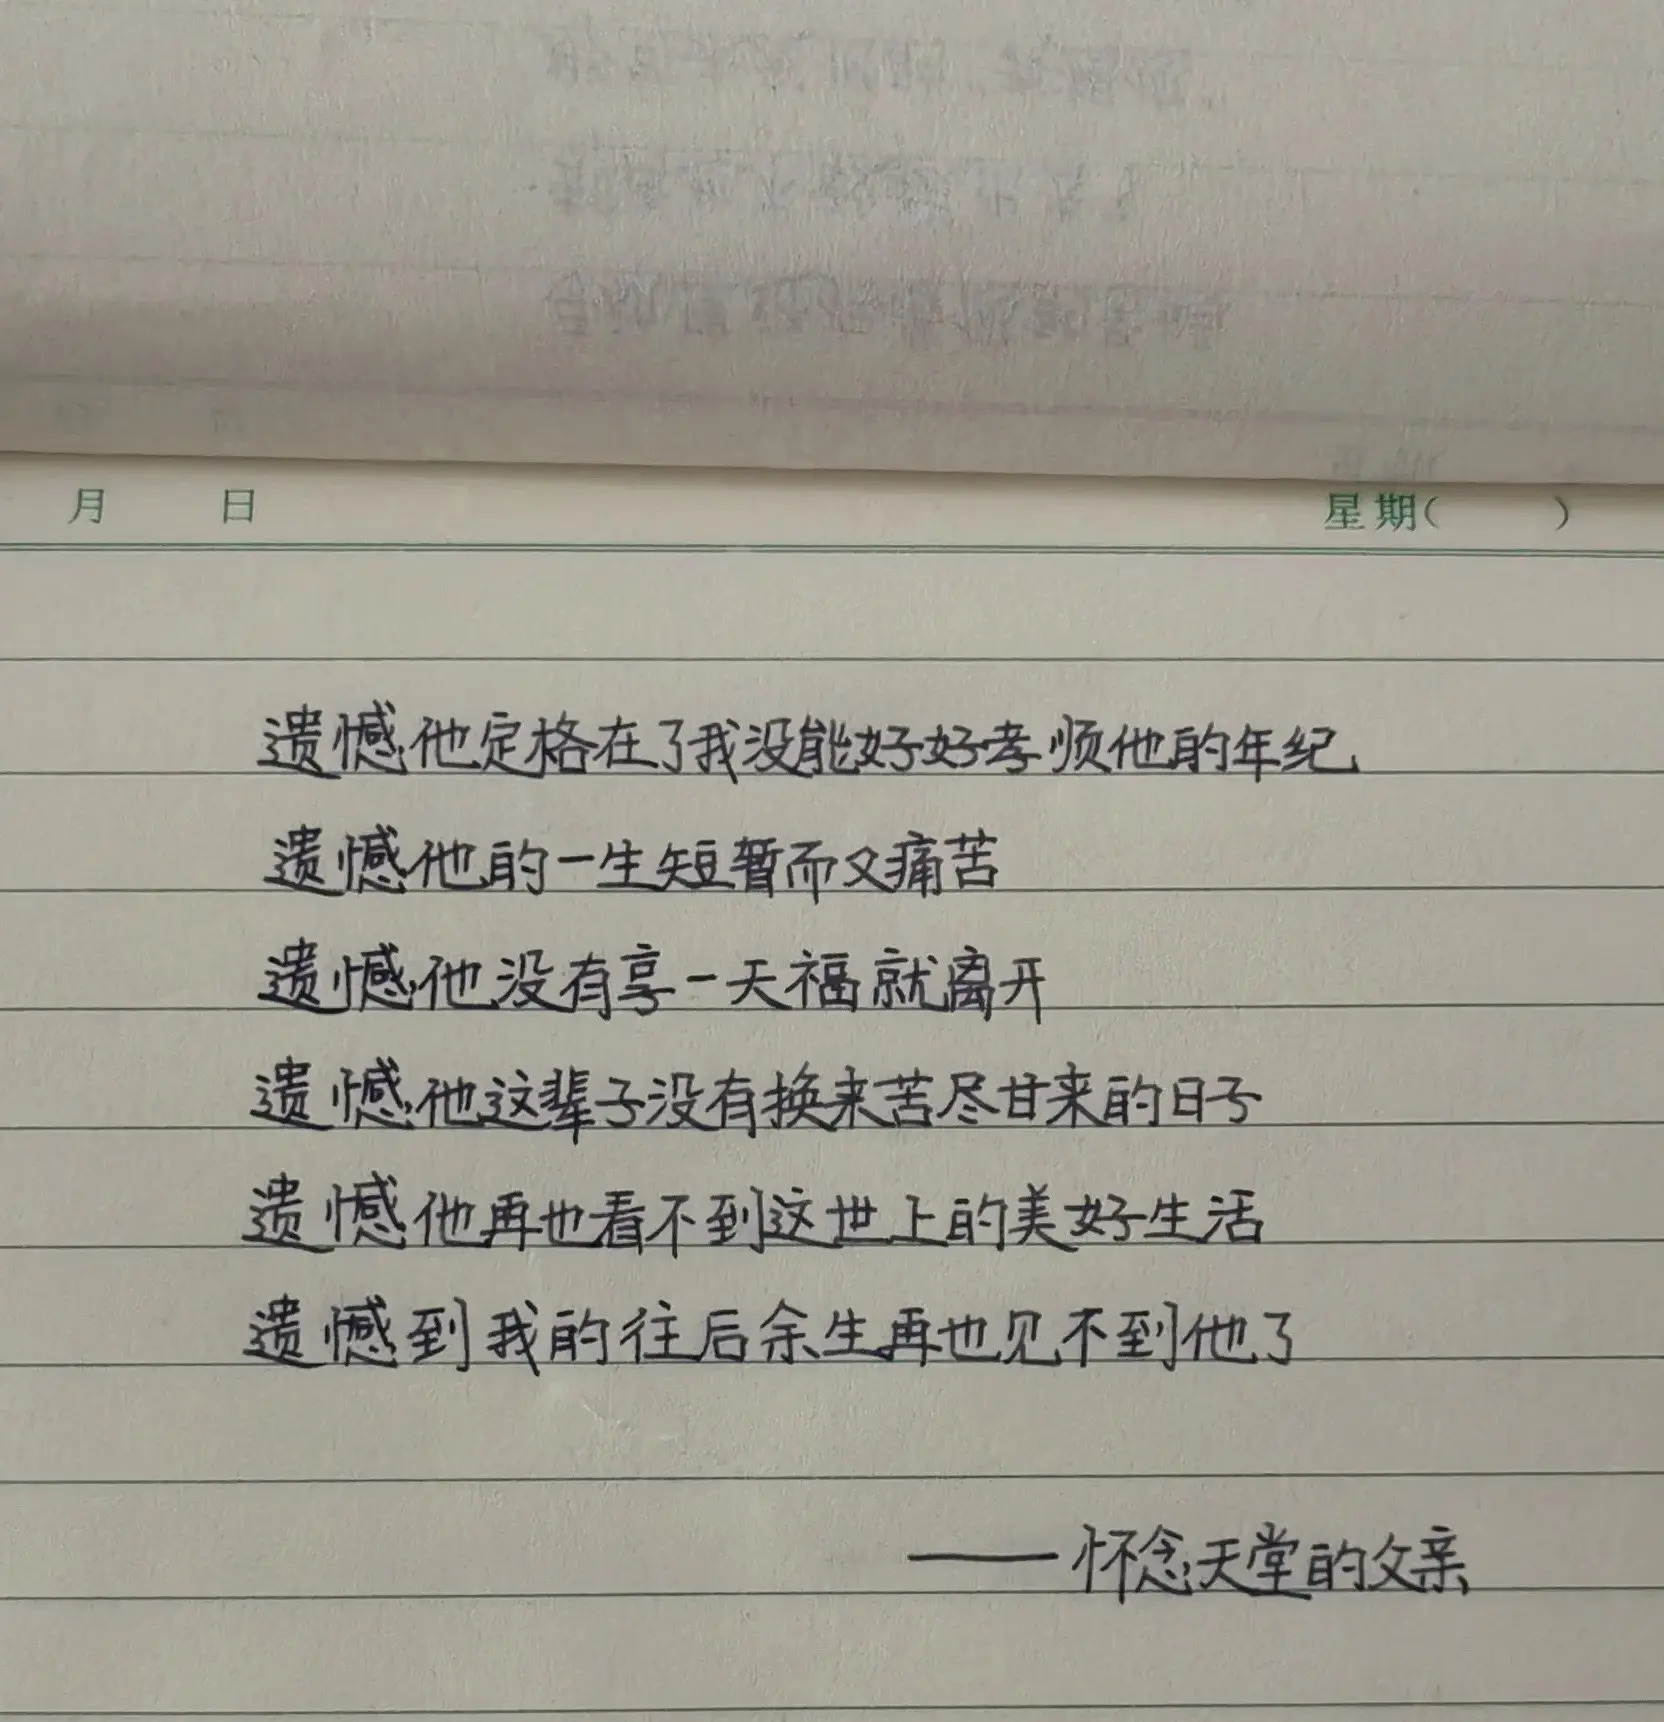 月 日 星期( )
遗憾他定格在了我没能好好孝顺他的年纪
遗憾他的一生短暂而又痛苦
遗憾他没有享一天福就离开
遗憾他这辈子没有换来苦尽甘来的日子
遗憾他再也看不到这世上的美好生活
遗憾到我的往后余生再也见不到他了
——怀念天堂的父亲